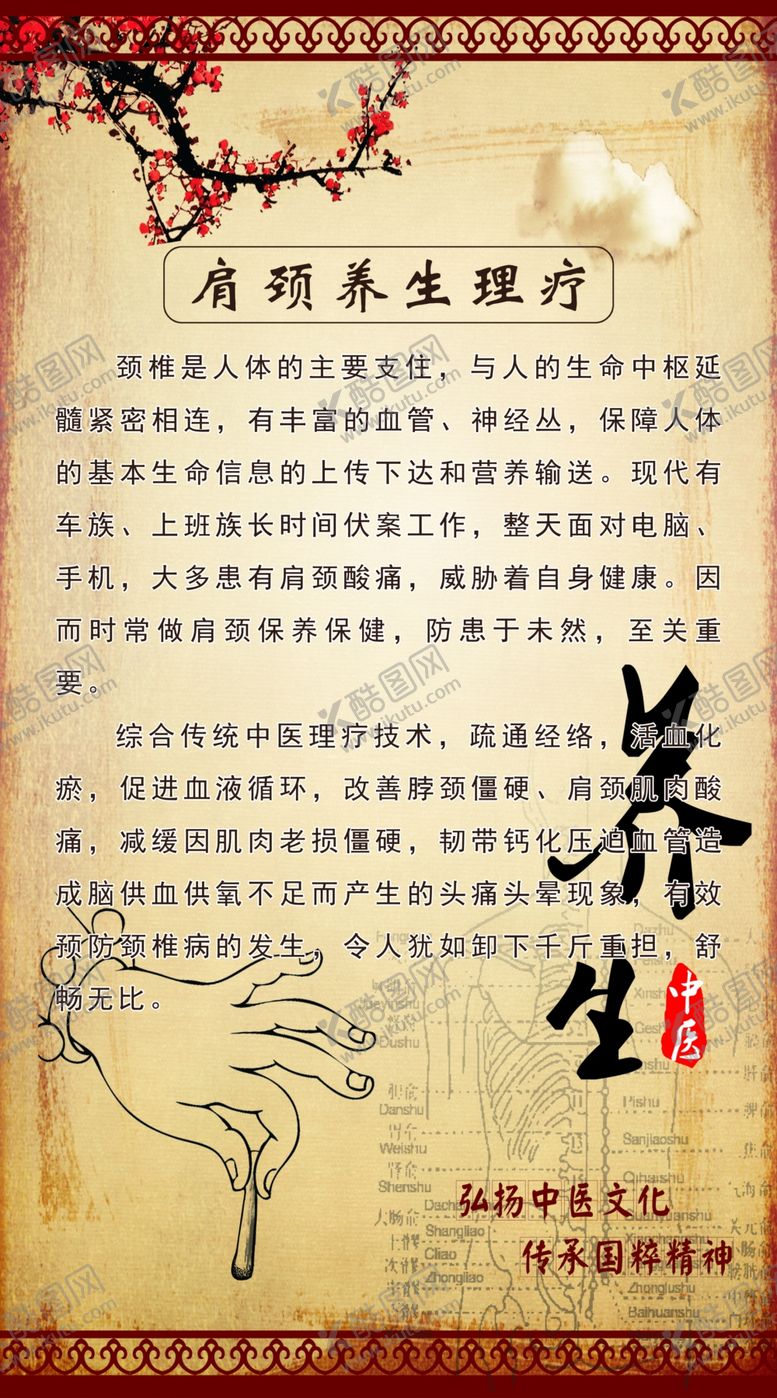 肩颈养生理疗
颈椎是人体的主要支住，与人的生命中枢延
髓紧密相连，有丰富的血管、神经丛，保障人体
的基本生命信息的上传下达和营养输送。现代有
车族、上班族长时间伏案工作，整天面对电脑、
手机，大多患有肩颈酸痛，威胁着自身健康。因
而时常做肩颈保养保健，防患于未然，至关重
要。
综合传统中医理疗技术，疏通经络，活血化
瘀，促进血液循环，改善脖颈僵硬、肩颈肌肉酸
痛，减缓因肌肉老损僵硬，韧带钙化压迫血管造
成脑供血供氧不足而产生的头痛头晕现象，有效
预防颈椎病的发生，令人犹如卸下千斤重担，舒
畅无比。
养生
中医
Dushu
Danshu
Weishu
Shenshu
Shangliao
Ciliao
Zhongliao
Pishu
Sanjiaoshu
Qihaishu
Zhonglushu
Baihuanshu
弘扬中医文化
传承国粹精神
酷图网
www.ikutu.com